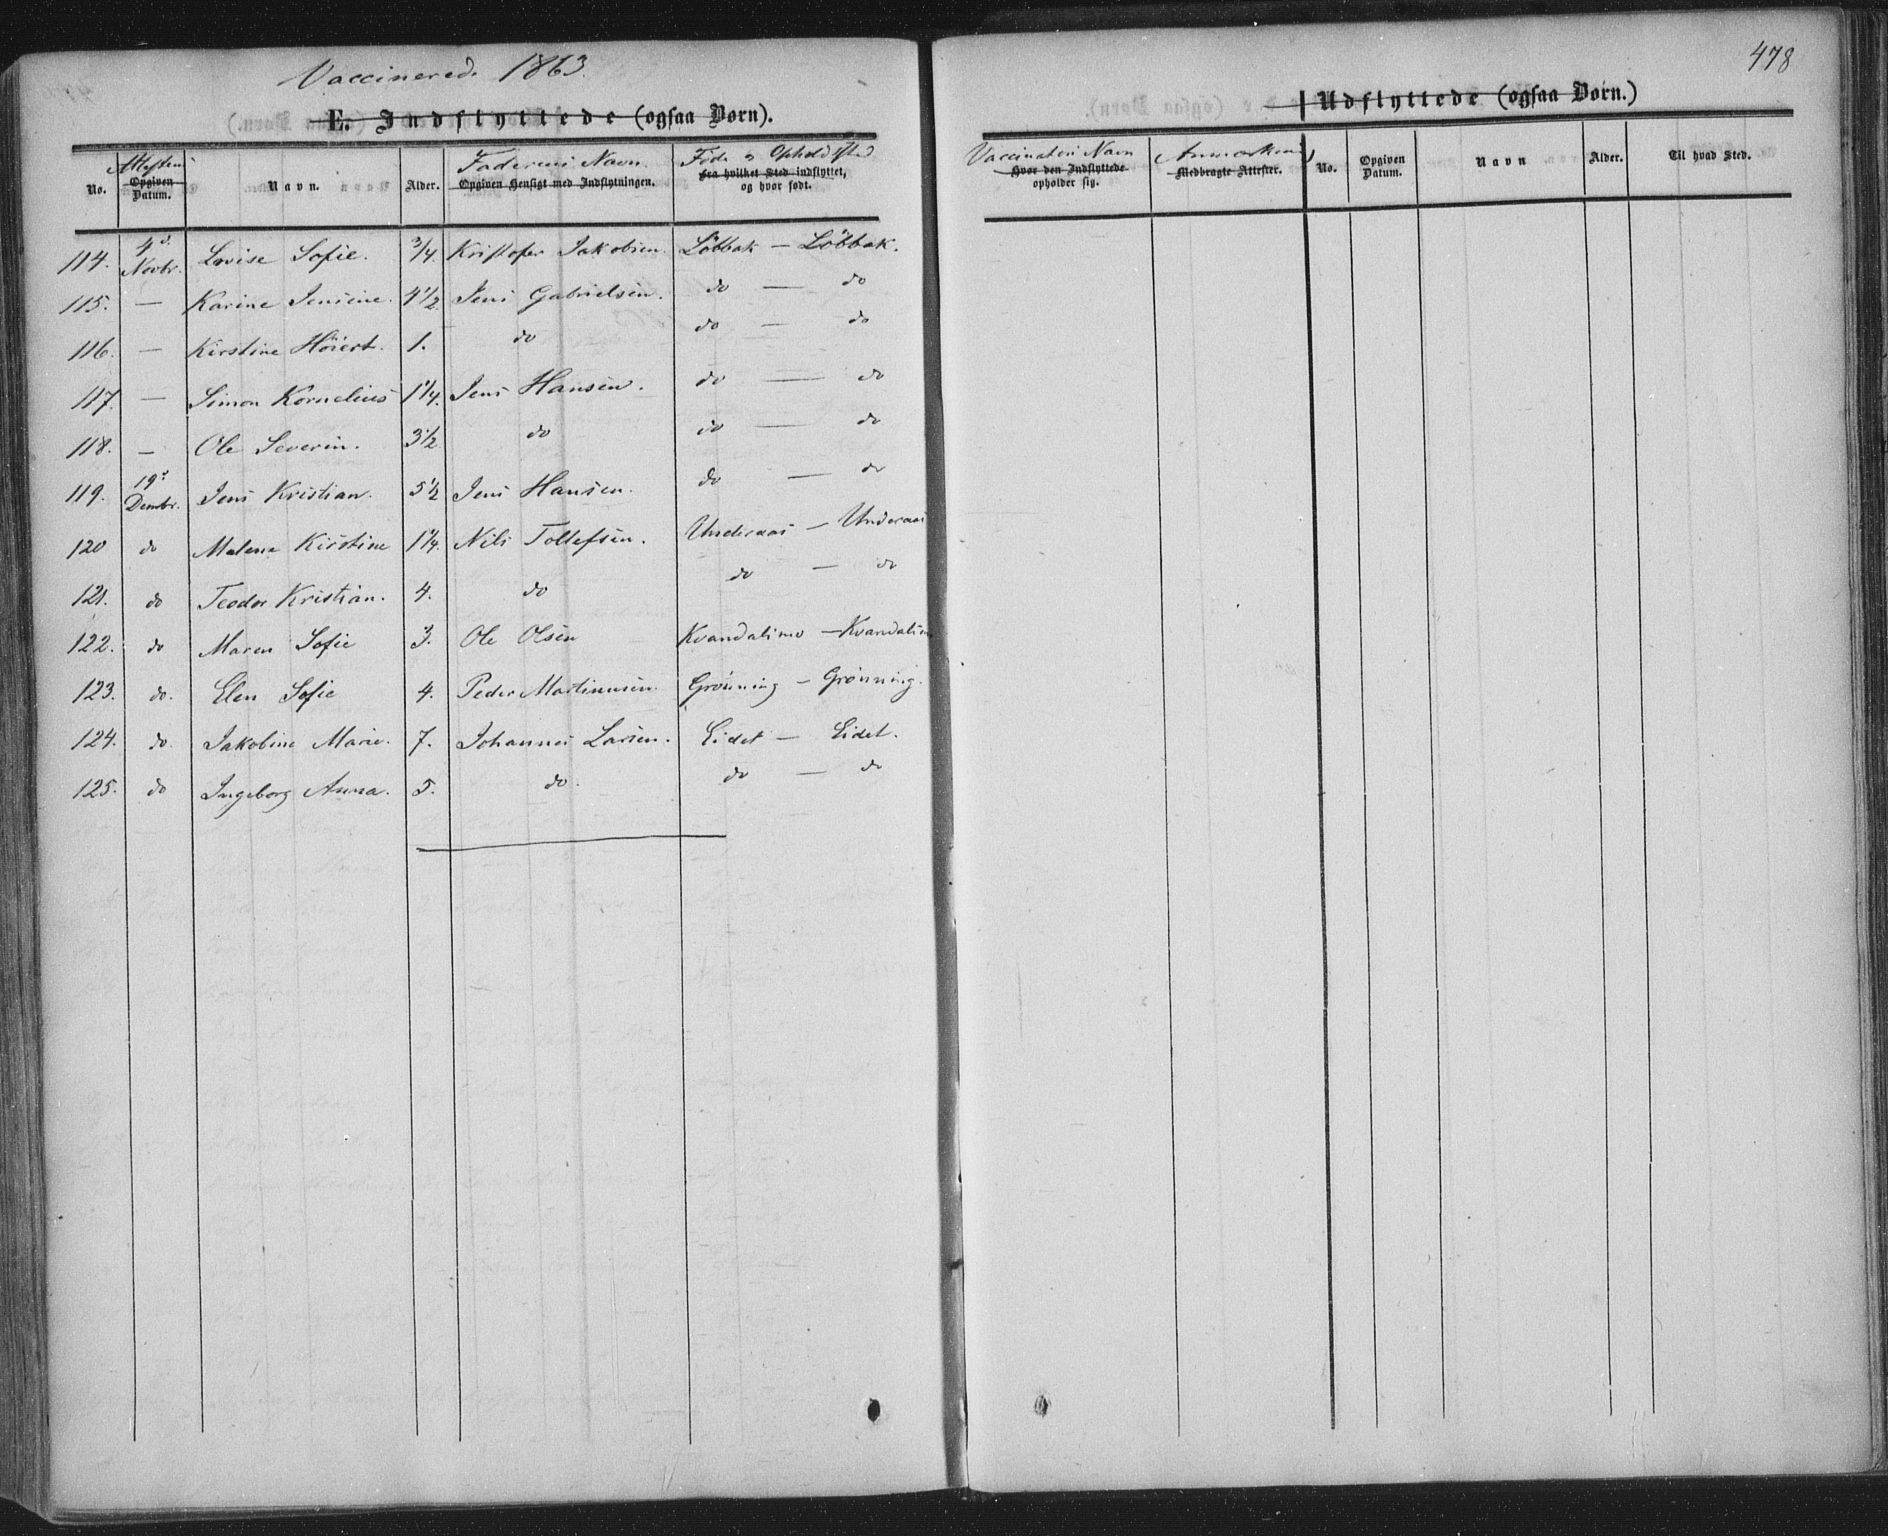 Vaccinerede 1863.
478
E. Indflyttede (ogsaa Børn).
Udflyttede (ogsaa Børn.)
No. Attestens Opgiven Datum. Navn. Alder. Faderens Navn Opgiven Hensigt med Indflytningen. Føde og Opholdssted Fra hvilket Sted indflyttet, og hvor født.
Vaccinatens Navn Hvor den Indflyttede opholder sig. Medbragte Attester. No. Opgiven Datum. Navn Alder. Til hvad Sted.
114. 4d Novbr. Lovise Sofie. 3/4. Kristofer Jakobsen. Löbbak — Löbbak.
115. — Karine Jensine. 4 1/2 Jens Gabrielsen. do — do
116. — Kirstine Höiert. 1. do do — do
117. — Simon Kornelius 1 1/4. Jens Hansen. do — do
118. — Ole Severin. 3 1/2 do do — do
119. 19d Dcmbr. Jens Kristian. 5 1/2 Jens Hansen. do — do
120 do Malene Kirstine 1 1/4. Nils Tollefsen. Underaas — Underaas
121. do Teodor Kristian. 4. do do — do
122. do Maren Sofie 3. Ole Olsen Kvandalsmo — Kvandalsm
123. do. Elen Sofie 4. Peder Martinusen. Grönning — Grönning.
124. do. Jakobine Marie. 7. Johannes Larsen. Eidet — Eidet.
125. do Ingeborg Anna. 5. do. do — do